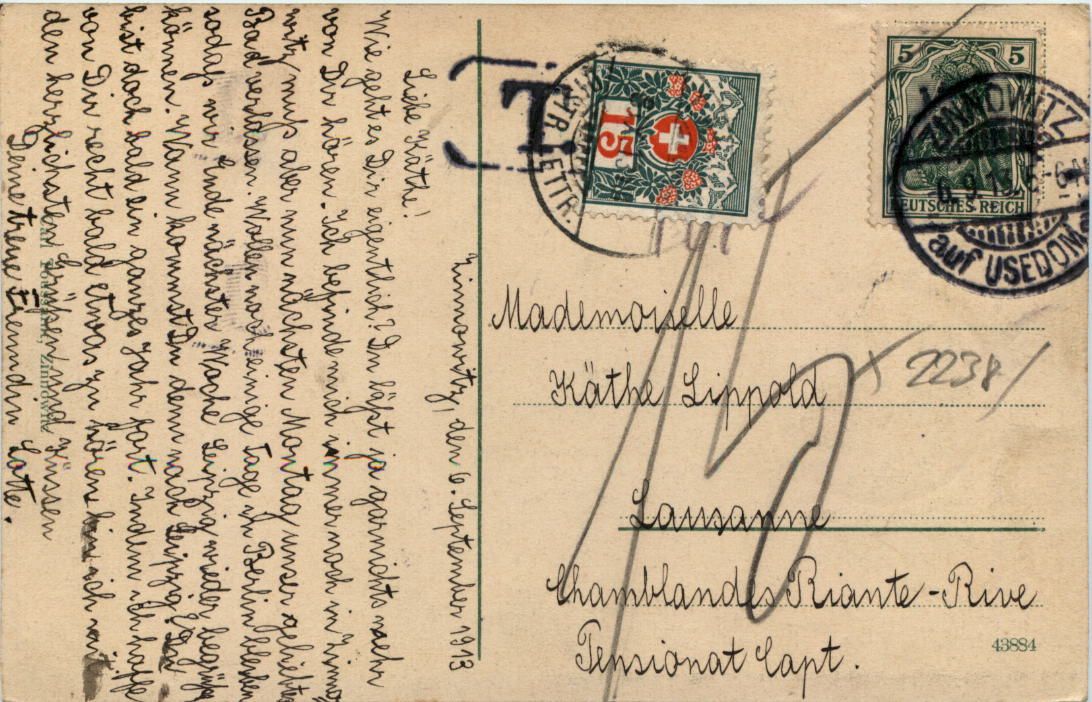 Zinnowitz, den 6. September 1913
Liebe Käthe!
Wie geht es Dir eigentlich? Du läßt ja garnichts mehr
von Dir hören. Ich befinde mich immer noch in Zinno-
witz, muß aber nun nächsten Montag unser geliebtes
Bad verlassen. Wollen noch einige Tage in Berlin bleiben
sodaß wir Ende nächster Woche Leipzig wieder begrüßen
können. Wann kommst Du denn nach Leipzig? Du
bist doch bald ein ganzes Jahr fort. Indem ich hoffe
von Dir recht bald etwas zu hören bin ich mit
den herzlichsten Grüßen und Küssen
Deine treue Freundin Lotte.
Zinnowitz
T.
15
LETTR.
5 5
DEUTSCHES REICH
ZINNOWITZ
6.9.13.
auf USEDOM
Mademoiselle
Käthe Lippold
2238
Lausanne
Chamblandes Riante-Rive
Pensionat Capt.
43884